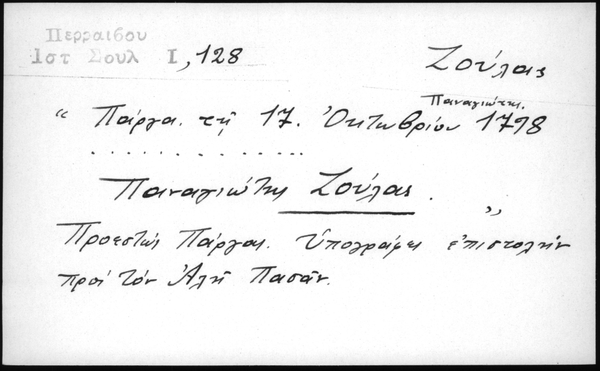 Περραιβου
Ιστ Σουλ Ι, 128
Ζούλας
Παναγιώτης.
“ Πάργα. τῇ 17. Ὀκτωβρίου 1798
. . . . . . . . . . . . . .
Παναγιώτης Ζούλας. „
Προεστώς Πάργας. Ὑπογράφει ἐπιστολήν
πρός τόν Ἀλῆ Πασᾶν.